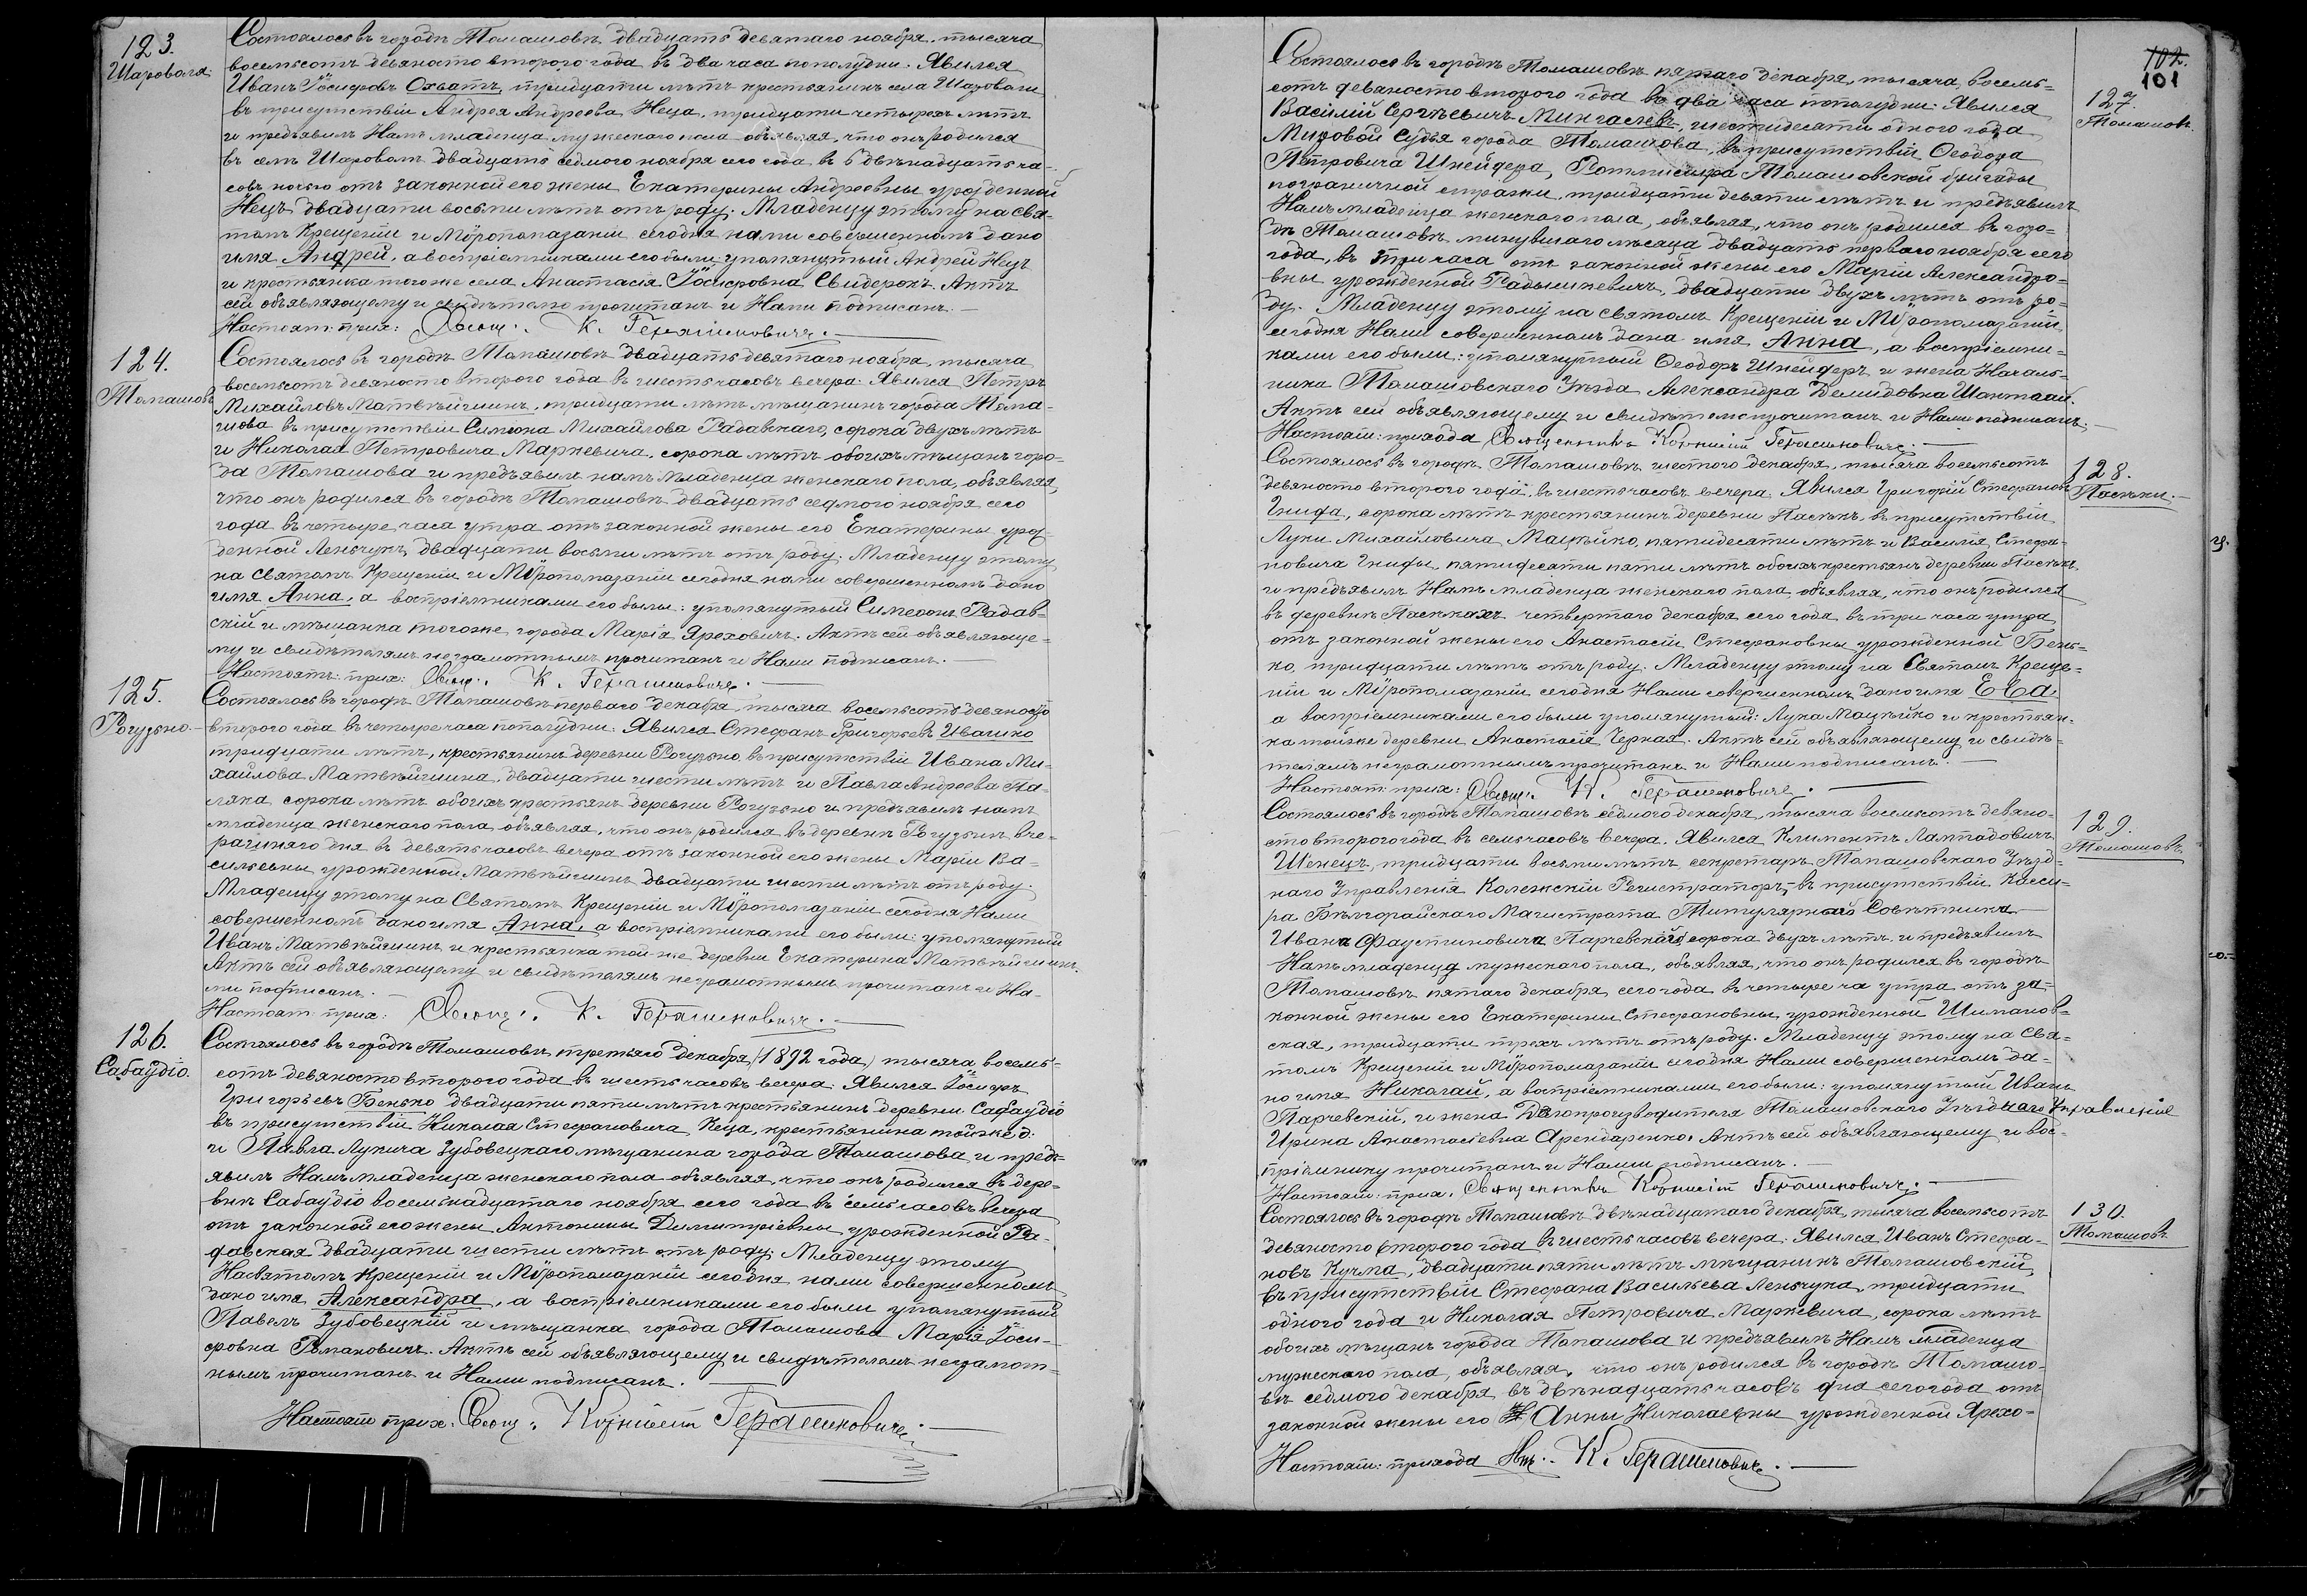 123.
Шаровола.
Состоялось въ городѣ Томашовѣ двадцать девятаго ноября, тысяча
восемьсотъ девяносто второго года въ два часа пополудни. Явился
Иванъ Іосифовъ Охватъ, тридцати лѣтъ крестьянинъ села Шаровали
въ присутствіи Андрея Андреева Неца, тридцати четырехъ лѣтъ
и предъявилъ Намъ младенца мужескаго пола объявляя, что онъ родился
въ селѣ Шароволѣ двадцать седмого ноября сего года, въ двѣнадцать ча-
совъ ночью отъ законной его жены Екатерины Андреевны урожденной
Нецъ двадцати восьми лѣтъ отъ роду. Младенцу этому на свя-
томъ Крещеніи и Мѵропомазаніи сегодня нами совершенномъ дано
имя Андрей, а воспріемниками его были: упомянутый Андрей Нецъ
и крестьянка тогоже села Анастасія Іосифовна Свидерокъ. Актъ
сей объявляющему и свидѣтелю прочитанъ и Нами подписанъ.
Настоят: прих: Свящ. К. Герасимовичъ.
124.
Томашовъ
Состоялось въ городѣ Томашовѣ двадцать девятаго ноября, тысяча
восемьсотъ девяносто второго года въ шесть часовъ вечера. Явился Петръ
Михайловъ Матвѣйшинъ, тридцати лѣтъ мѣщанинъ города Тома-
шова въ присутствіи Симеона Михайлова Радавскаго, сорока двухъ лѣтъ
и Николая Петровича Маркевича, сорока лѣтъ обоихъ мѣщанъ горо-
да Томашова и предъявилъ намъ младенца женскаго пола, объявляя,
что онъ родился въ городѣ Томашовѣ двадцать седмого ноября сего
года въ четыре часа утра отъ законной жены его Екатерины урож-
денной Леньчукъ, двадцати восьми лѣтъ отъ роду. Младенцу этому
на святомъ Крещеніи и Мѵропомазаніи сегодня нами совершенномъ дано
имя Анна, а воспріемниками его были: упомянутый Симеонъ Радав-
скій и мѣщанка тогоже города Марія Яреховичъ. Актъ сей объявляюще-
му и свидѣтелямъ неграмотнымъ прочитанъ и Нами подписанъ.
Настоят: прих: Свящ. К. Герасимовичъ.
125.
Рогузьно.
Состоялось въ городѣ Томашовѣ перваго декабря, тысяча восемьсотъ девяносто
второго года въ четыре часа пополудни. Явился Стефанъ Григорьевъ Ивашко
тридцати лѣтъ, крестьянинъ деревни Рогузьно, въ присутствіи Ивана Ми-
хайлова Матвѣйшина, двадцати шести лѣтъ и Павла Андреева Па-
ляка сорока лѣтъ обоихъ крестьянъ деревни Рогузьно и предъявилъ намъ
младенца женскаго пола объявляя, что онъ родился въ деревнѣ Рогузьнѣ вче-
рашняго дня въ девять часовъ вечера отъ законной его жены Маріи Ва-
сильевны урожденной Матвѣйшинъ двадцати шести лѣтъ отъ роду.
Младенцу этому на Святомъ Крещеніи и Мѵропомазаніи сегодня Нами
совершенномъ дано имя Анна, а воспріемниками его были: упомянутый
Иванъ Матвѣйшинъ и крестьянка той-же деревни Екатерина Матвѣйшинъ.
Актъ сей объявляющему и свидѣтелямъ неграмотнымъ прочитанъ и На-
ми подписанъ.
Настоят: прих: Свящ. К. Герасимовичъ.
126.
Сабаудіо.
Состоялось въ городѣ Томашовѣ третьяго декабря, (1892 года) тысяча восемь-
сотъ девяносто второго года въ шесть часовъ вечера. Явился Іосифъ
Григорьевъ Бенько двадцати пяти лѣтъ крестьянинъ деревни Сабаудіо
въ присутствіи Николая Стефановича Кеца, крестьянина той же д.
и Павла Лукича Зубовецкаго мѣщанина города Томашова и предъ-
явилъ Намъ младенца женскаго пола объявляя, что онъ родился въ дере-
внѣ Сабаудіо восемьнадцатаго ноября сего года въ семь часовъ вечера
отъ законной его жены Антонины Димитріевны урожденной Ра-
давская двадцати шести лѣтъ отъ роду. Младенцу этому
На святомъ Крещеніи и Мѵропомазаніи сегодня нами совершенномъ
дано имя Александра, а воспріемниками его были упомянутый
Павелъ Зубовецкій и мѣщанка города Томашова Марія Іоси-
фовна Романовичъ. Актъ сей объявляющему и свидѣтелемъ неграмот-
нымъ прочитанъ и Нами подписанъ.
Настоят прих: Свящ. Корнилій Герасимовичъ.
102.
101
127.
Томашовъ.
Состоялось въ городѣ Томашовѣ пятаго декабря, тысяча восемь-
сотъ девяносто второго года въ два часа пополудни. Явился
Василій Сергѣевичъ Мингалевъ, шестидесяти одного года
Мировой Судья города Томашова, въ присутствіи Ѳеодора
Петровича Шнейдера, Ротмистра Томашовской бригады
пограничной стражи, тридцати девяти лѣтъ и предъявилъ
Намъ младенца женскаго пола, объявляя, что онъ родился въ горо-
дѣ Томашовѣ минувшаго мѣсяца двадцать перваго ноября сего
года, въ три часа отъ законной жены его Маріи Александро-
вны урожденной Радышкевичъ, двадцати двухъ лѣтъ отъ ро-
ду. Младенцу этому на святомъ Крещеніи и Мѵропомазаніи
сегодня Нами совершенномъ дана имя Анна, а воспріемни-
ками его были: упомянутый Ѳеодоръ Шнейдеръ и жена Началь-
ника Томашовскаго Уѣзда Александра Демидовна
Актъ сей объявляющему и свидѣтелю прочитанъ и Нами подписанъ.
Настоят: прихода Священникъ Корнилій Герасимовичъ.
128.
Пасѣки.
Состоялось въ городѣ Томашовѣ шестого декабря, тысяча восемьсотъ
девяносто второго года, въ шесть часовъ вечера. Явился Григорій Стефановъ
Гнифа, сорока лѣтъ крестьянинъ деревни Пасѣкъ, въ присутствіи
Луки Михайловича Мацѣйко, пятидесяти лѣтъ и Василія Стефа-
новича Гнифы, пятидесяти пяти лѣтъ обоихъ крестьянъ деревни Пасѣкъ
и предъявилъ Намъ младенца женскаго пола объявляя, что онъ родился
въ деревнѣ Пасѣкахъ четвертаго декабря сего года въ три часа утра
отъ законной жены его Анастасіи Стефановны урожденной Бень-
ко, тридцати лѣтъ отъ роду. Младенцу этому на Святомъ Креще-
ніи и Мѵропомазаніи сегодня Нами совершенномъ дано имя Ева,
а воспріемниками его были упомянутый: Лука Мацѣйко и крестьян-
ка тойже деревни Анастасія Черная. Актъ сей объявляющему и свидѣ-
телямъ неграмотнымъ прочитанъ и Нами подписанъ.
Настоят: прих: Свящ. К. Герасимовичъ.
129.
Томашовъ.
Состоялось въ городѣ Томашовѣ седмого декабря, тысяча восемьсотъ девяно-
сто второго года въ семь часовъ вечера. Явился Климентъ Лампадовичъ
Шенецъ, тридцати восьми лѣтъ секретарь Томашовскаго Уѣзд-
наго Управленія Колежскій Регистраторъ, въ присутствіи Касси-
ра Бѣлгорайскаго Магистрата Титулярнаго Совѣтника
Ивана Фаустиновича Парчевскаго сорока двухъ лѣтъ и предъявилъ
Намъ младенца мужескаго пола, объявляя, что онъ родился въ городѣ
Томашовѣ пятаго декабря сего года въ четыре ча утра отъ за-
конной жены его Екатерины Стефановны, урожденной Шиманов-
ская, тридцати трехъ лѣтъ отъ роду. Младенцу этому на Свя-
томъ Крещеніи и Мѵропомазаніи сегодня Нами совершенномъ да-
но имя Николай, а воспріемниками его были: упомянутый Иванъ
Парчевскій, и жена Дѣлопроизводителя Томашовскаго Уѣзднаго Управленія
Ирина Анастасіевна Арендаренко. Актъ сей объявляющему и вос-
пріемнику прочитанъ и Нами подписанъ.
Настоят: прих. Священникъ Корнилій Герасимовичъ.
130.
Томашовъ.
Состоялось въ городѣ Томашовѣ двѣнадцатаго декабря, тысяча восемьсотъ
девяносто второго года въ шесть часовъ вечера. Явился Иванъ Стефа-
новъ Кучма, двадцати пяти лѣтъ мѣщанинъ Томашовскій,
въ присутствіи Стефана Васильева Леньчука, тридцати
одного года и Николая Петровича Маркевича, сорока лѣтъ
обоихъ мѣщанъ города Томашова и предъявилъ Намъ младенца
мужескаго пола, объявляя, что онъ родился въ городѣ Томашо-
вѣ седмого декабря въ двѣнадцать часовъ дня сего года отъ
законной жены его Анны Николаевны урожденной Ярехо-
Настоят: прихода К. Герасимовичъ.